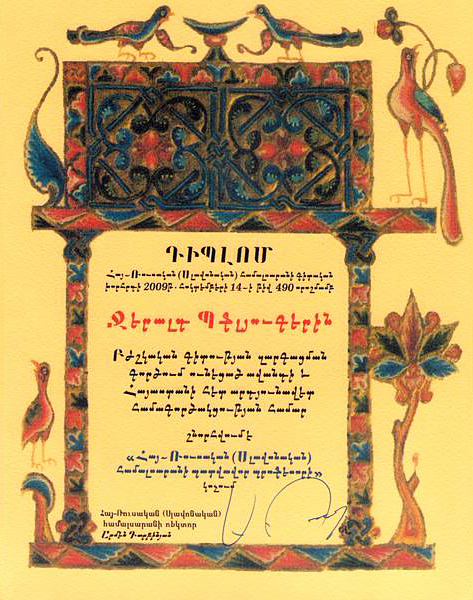 ԴԻՊԼՈՄ
Հայ-Ռուսական (Սլավոնական) համալսարանի գիտական
խորհրդի 2009թ. հոկտեմբերի 14-ի թիվ 490 որոշմամբ
Ջերալտ Պֆլյուգերին
Բժշկական գիտության զարգացման
գործում ունեցած ավանդի և
Հայաստանի հետ արդյունավետ
համագործակցության համար
շնորհվում է
«Հայ-Ռուսական (Սլավոնական)
համալսարանի պատվավոր պրոֆեսորի»
կոչում
Հայ-Ռուսական (Սլավոնական)
համալսարանի ռեկտոր
Արմեն Դարբինյան